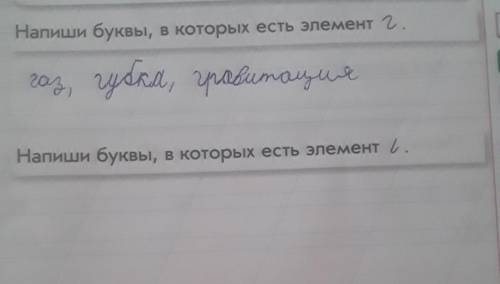 Напиши буквы, в которых есть элемент г.
газ, губка, гравитация
Напиши буквы, в которых есть элемент ι.